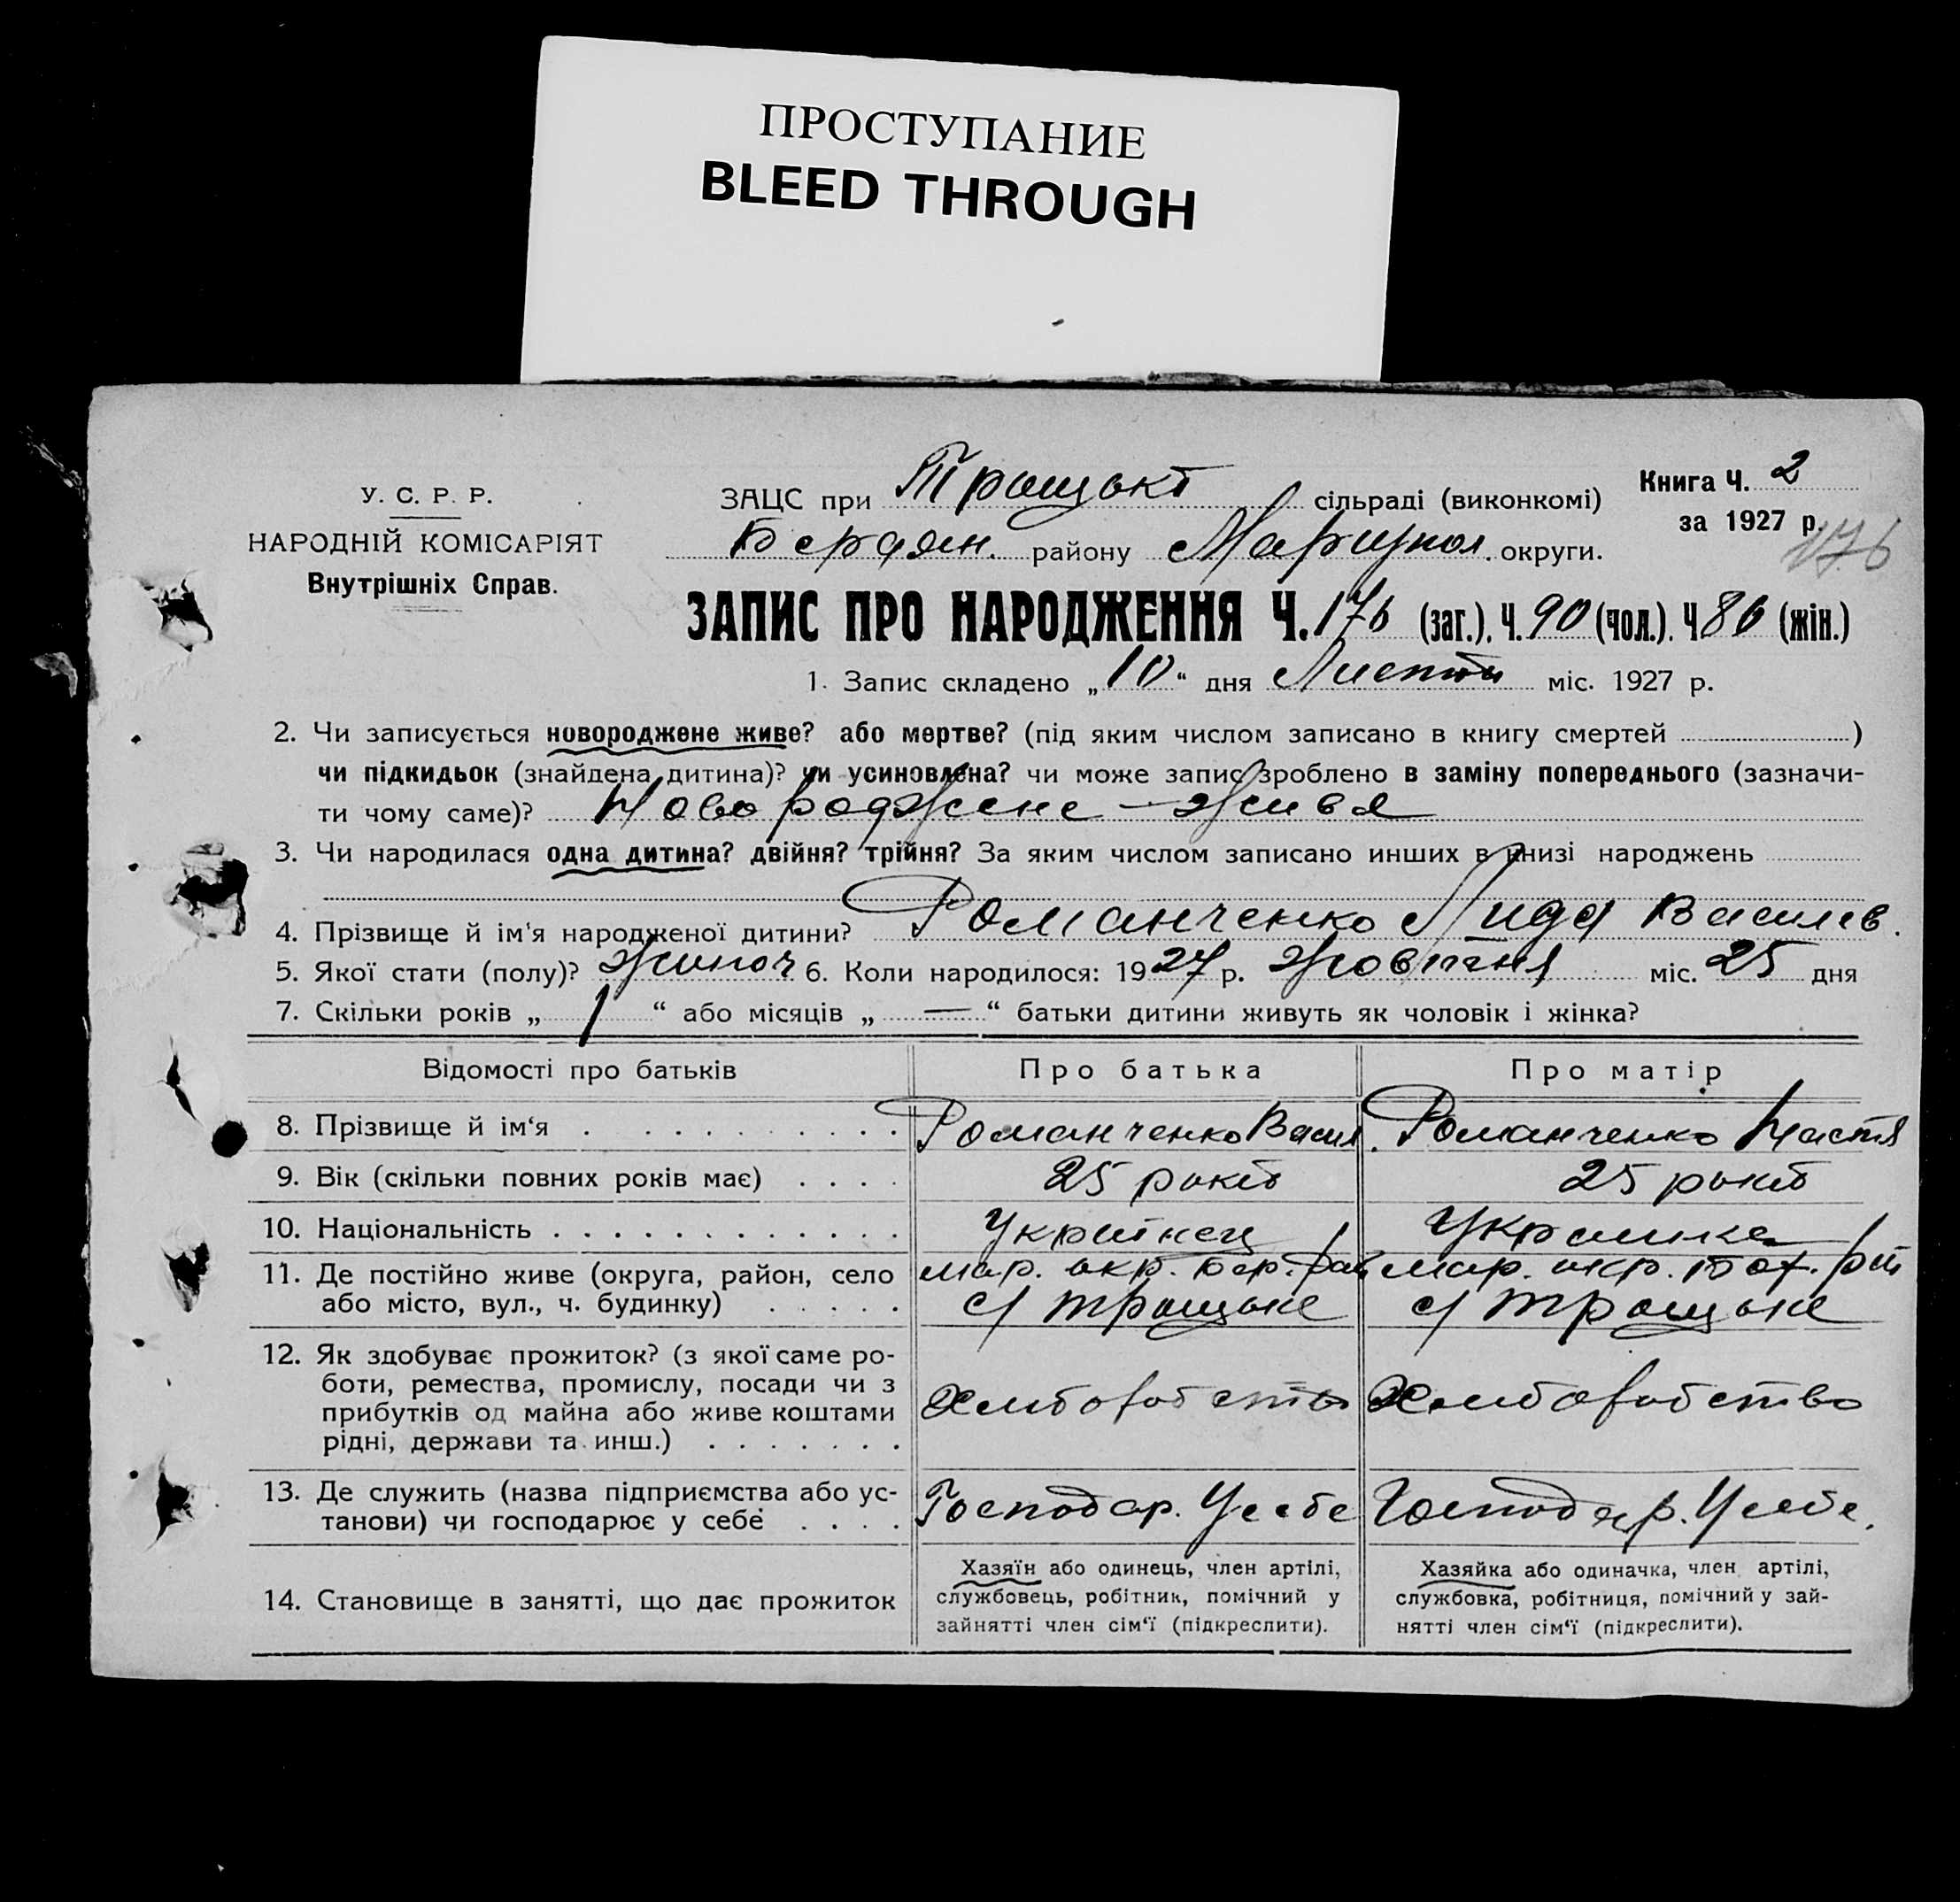 ПРОСТУПАНИЕ
BLEED THROUGH
У. С. Р. Р.
НАРОДНІЙ КОМІСАРІЯТ
Внутрішніх Справ.
ЗАЦС при Троцькі сільраді (виконкомі)
Бердян. району Маріупол. округи.
Книга Ч. 2
за 1927 р.
176
ЗАПИС ПРО НАРОДЖЕННЯ Ч. 176 (заг.). Ч. 90 (чол.). Ч 86 (жін.)
1. Запис складено „10“ дня Листоп міс. 1927 р.
2. Чи записується новороджене живе? або мертве? (під яким числом записано в книгу смертей )
чи підкидьок (знайдена дитина)? чи усиновлена? чи може запис зроблено в заміну попереднього (зазначи-
ти чому саме)? Новороджене - живе
3. Чи народилася одна дитина? двійня? трійня? За яким числом записано инших в книзі народжень
4. Прізвище й ім'я народженої дитини? Романченко Лида Василев.
5. Якої стати (полу)? жиноч 6. Коли народилося: 1927 р. Жовтня міс. 25 дня
7. Скільки років „ 1 “ або місяців „ — “ батьки дитини живуть як чоловік і жінка?
Відомості про батьків Про батька Про матір
8. Прізвище й ім'я Романченко Васил. Романченко Настя
9. Вік (скільки повних років має) 25 рокив 25 рокив
10. Національність Украинец Украинка
11. Де постійно живе (округа, район, село мар. окр. бер. рай мар. окр. рай
або місто, вул., ч. будинку) с/ Троцьке с/ Троцьке
12. Як здобуває прожиток? (з якої саме ро-
боти, ремества, промислу, посади чи з
прибутків од майна або живе коштами
рідні, держави та инш.)
Хлиборобство Хлиборобство
13. Де служить (назва підприємства або ус-
танови) чи господарює у себе
Господар. У себе Господар. У себе.
14. Становище в занятті, що дає прожиток
Хазяїн або одинець, член артілі,
службовець, робітник, помічний у
зайнятті член сім'ї (підкреслити).
Хазяйка або одиначка, член артілі,
службовка, робітниця, помічний у зай-
нятті член сім'ї (підкреслити).